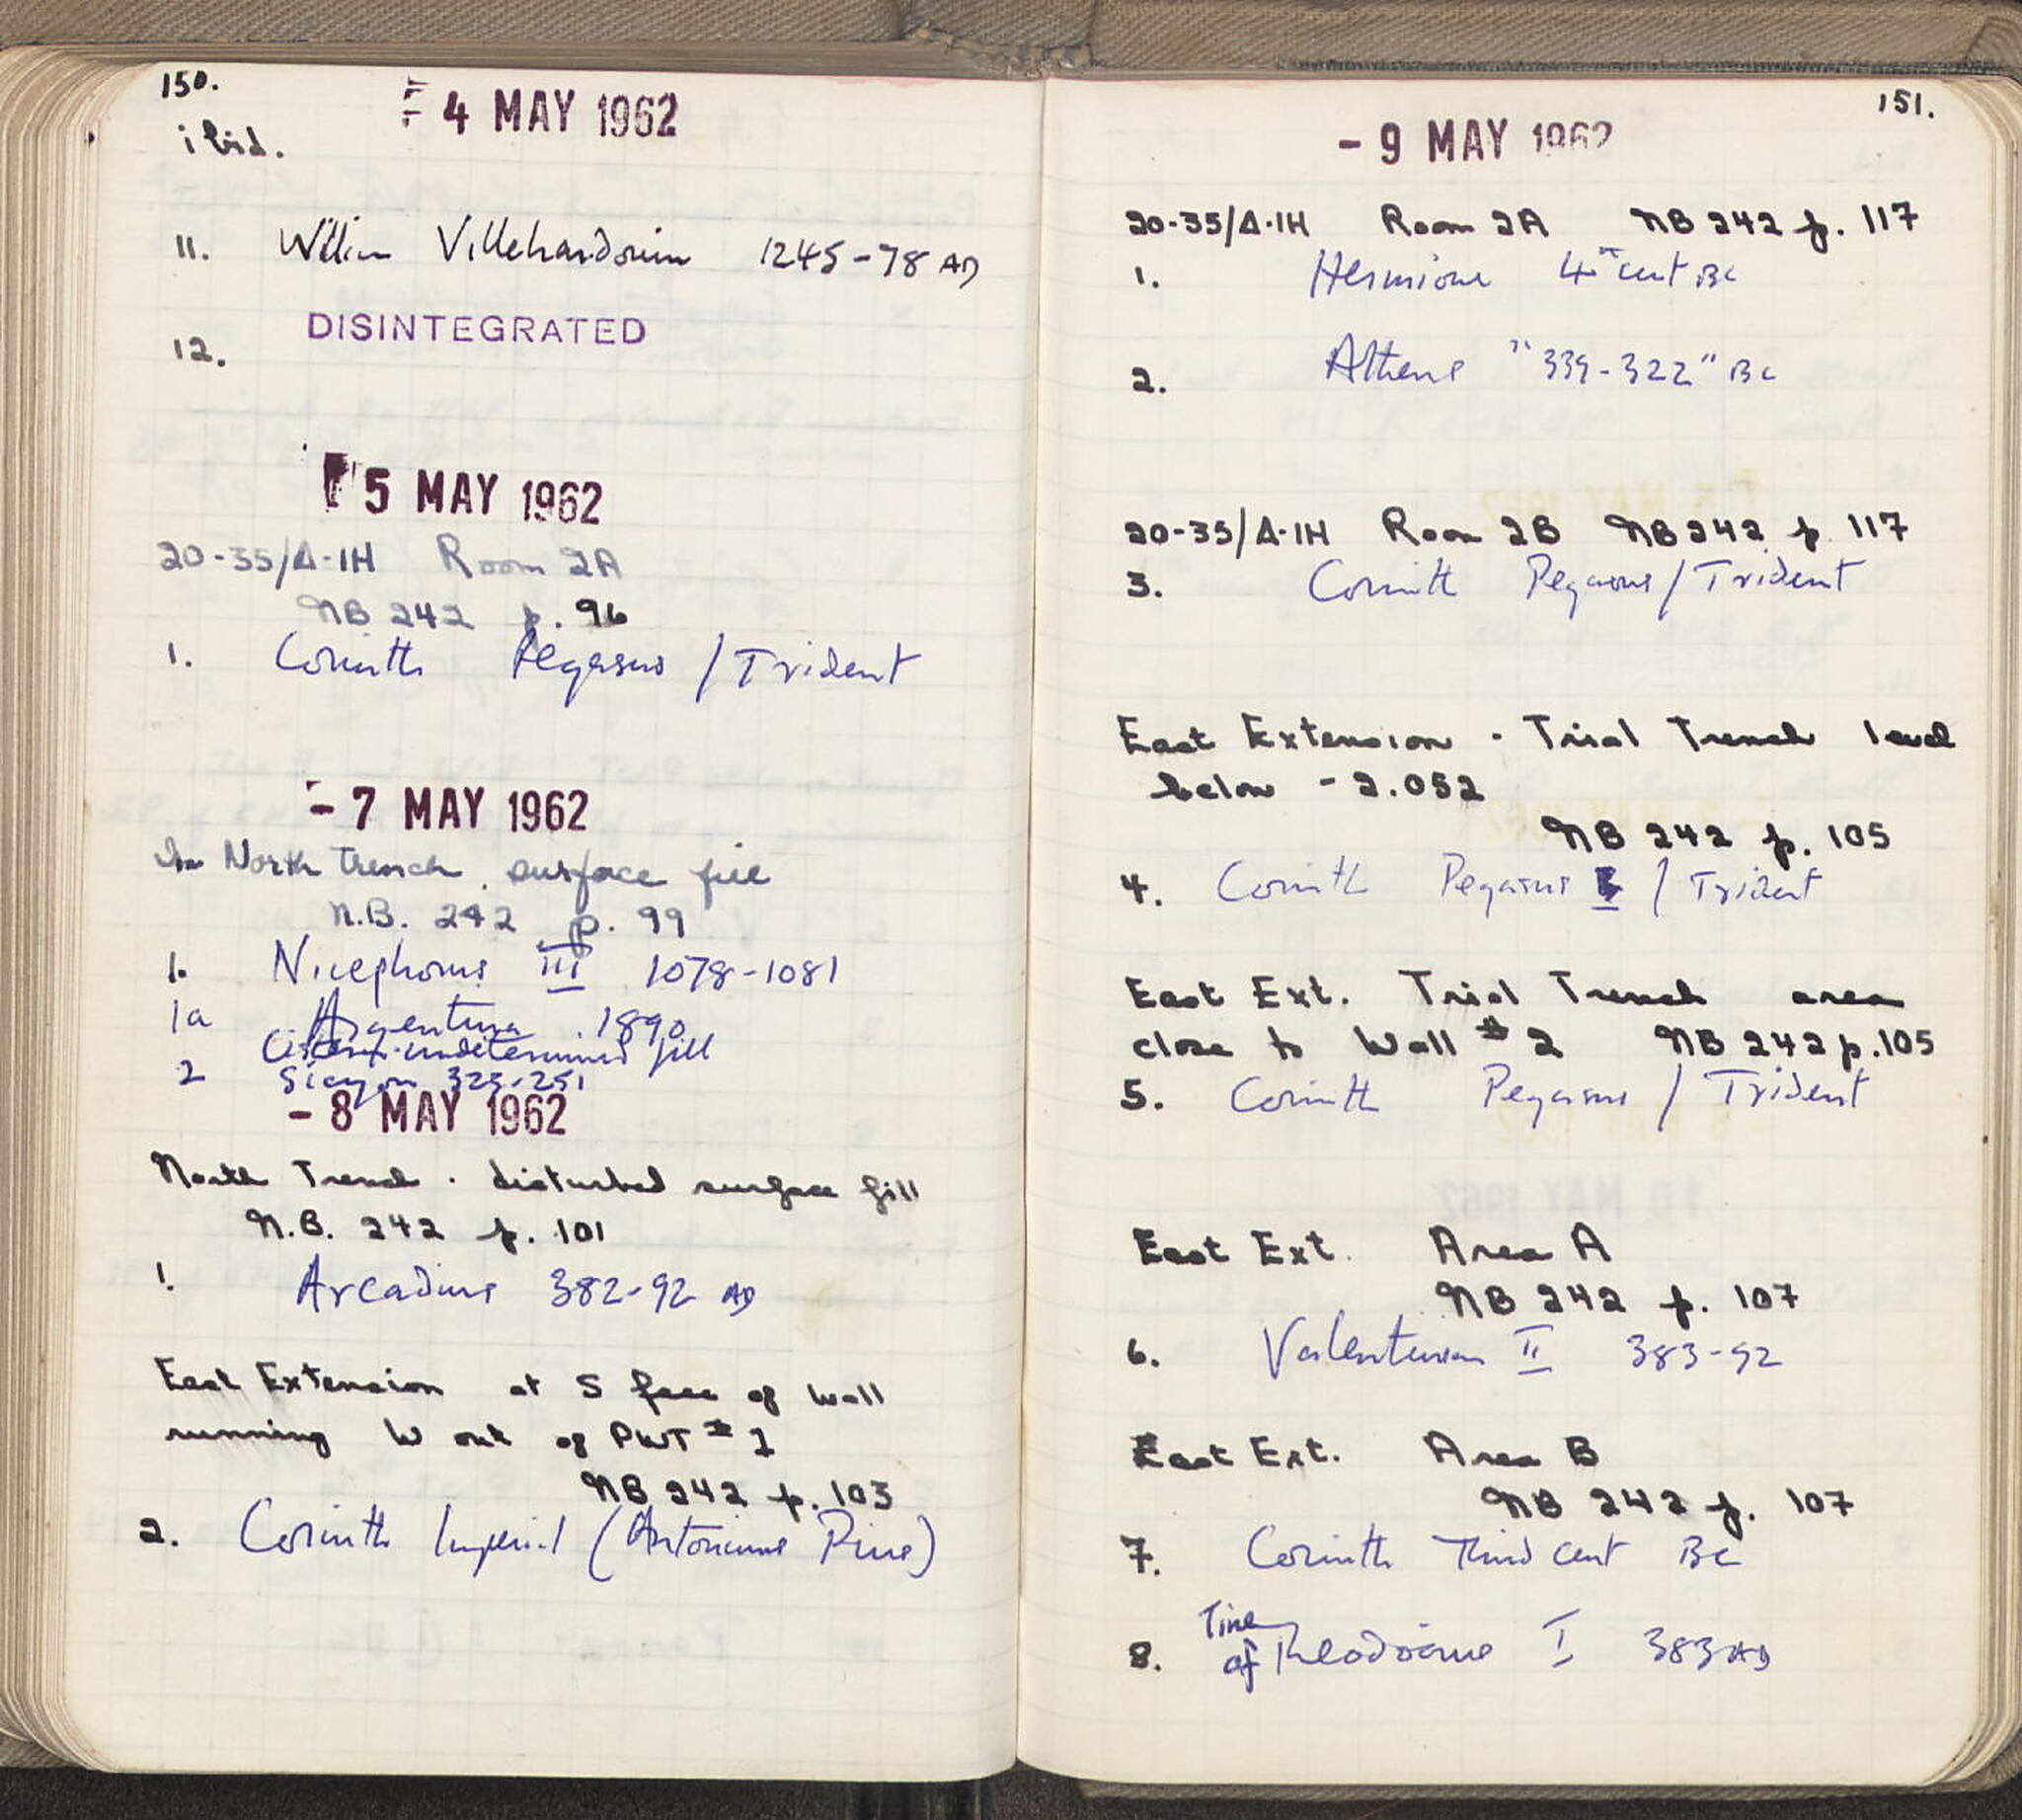 150.
4 MAY 1962
ibid.
11. William Villehardouin 1245-78 AD
DISINTEGRATED
12.
5 MAY 1962
20-35/Δ-IH Room 2A
NB 242 p. 96
1. Corinth Pegasus / Trident
- 7 MAY 1962
In North Trench, surface fill
N.B. 242 p. 99
1. Nicephorus III 1078-1081
1a Argentina 1890
undetermined fill
2 Sicyon 323-251
- 8 MAY 1962
North Trench. disturbed surface fill
N.B. 242 p. 101
1. Arcadius 382-92 AD
East Extension at S face of Wall
running W out of PWT # 1
NB 242 p. 103
2. Corinth Imperial (Antoninus Pius)
151.
- 9 MAY 1962
20-35/Δ-IH Room 2A NB 242 p. 117
1. Hermione 4th cent BC
2. Athens "339-322" BC
20-35/Δ-IH Room 2B NB 242 p. 117
3. Corinth Pegasus / Trident
East Extension - Trial Trench level
below - 2.052
NB 242 p. 105
4. Corinth Pegasus / Trident
East Ext. Trial Trench area
close to Wall # 2 NB 242 p. 105
5. Corinth Pegasus / Trident
East Ext. Area A
NB 242 p. 107
6. Valentinian II 383-92
East Ext. Area B
NB 242 p. 107
7. Corinth Third cent BC
Time
8. of Theodosius I 383 AD